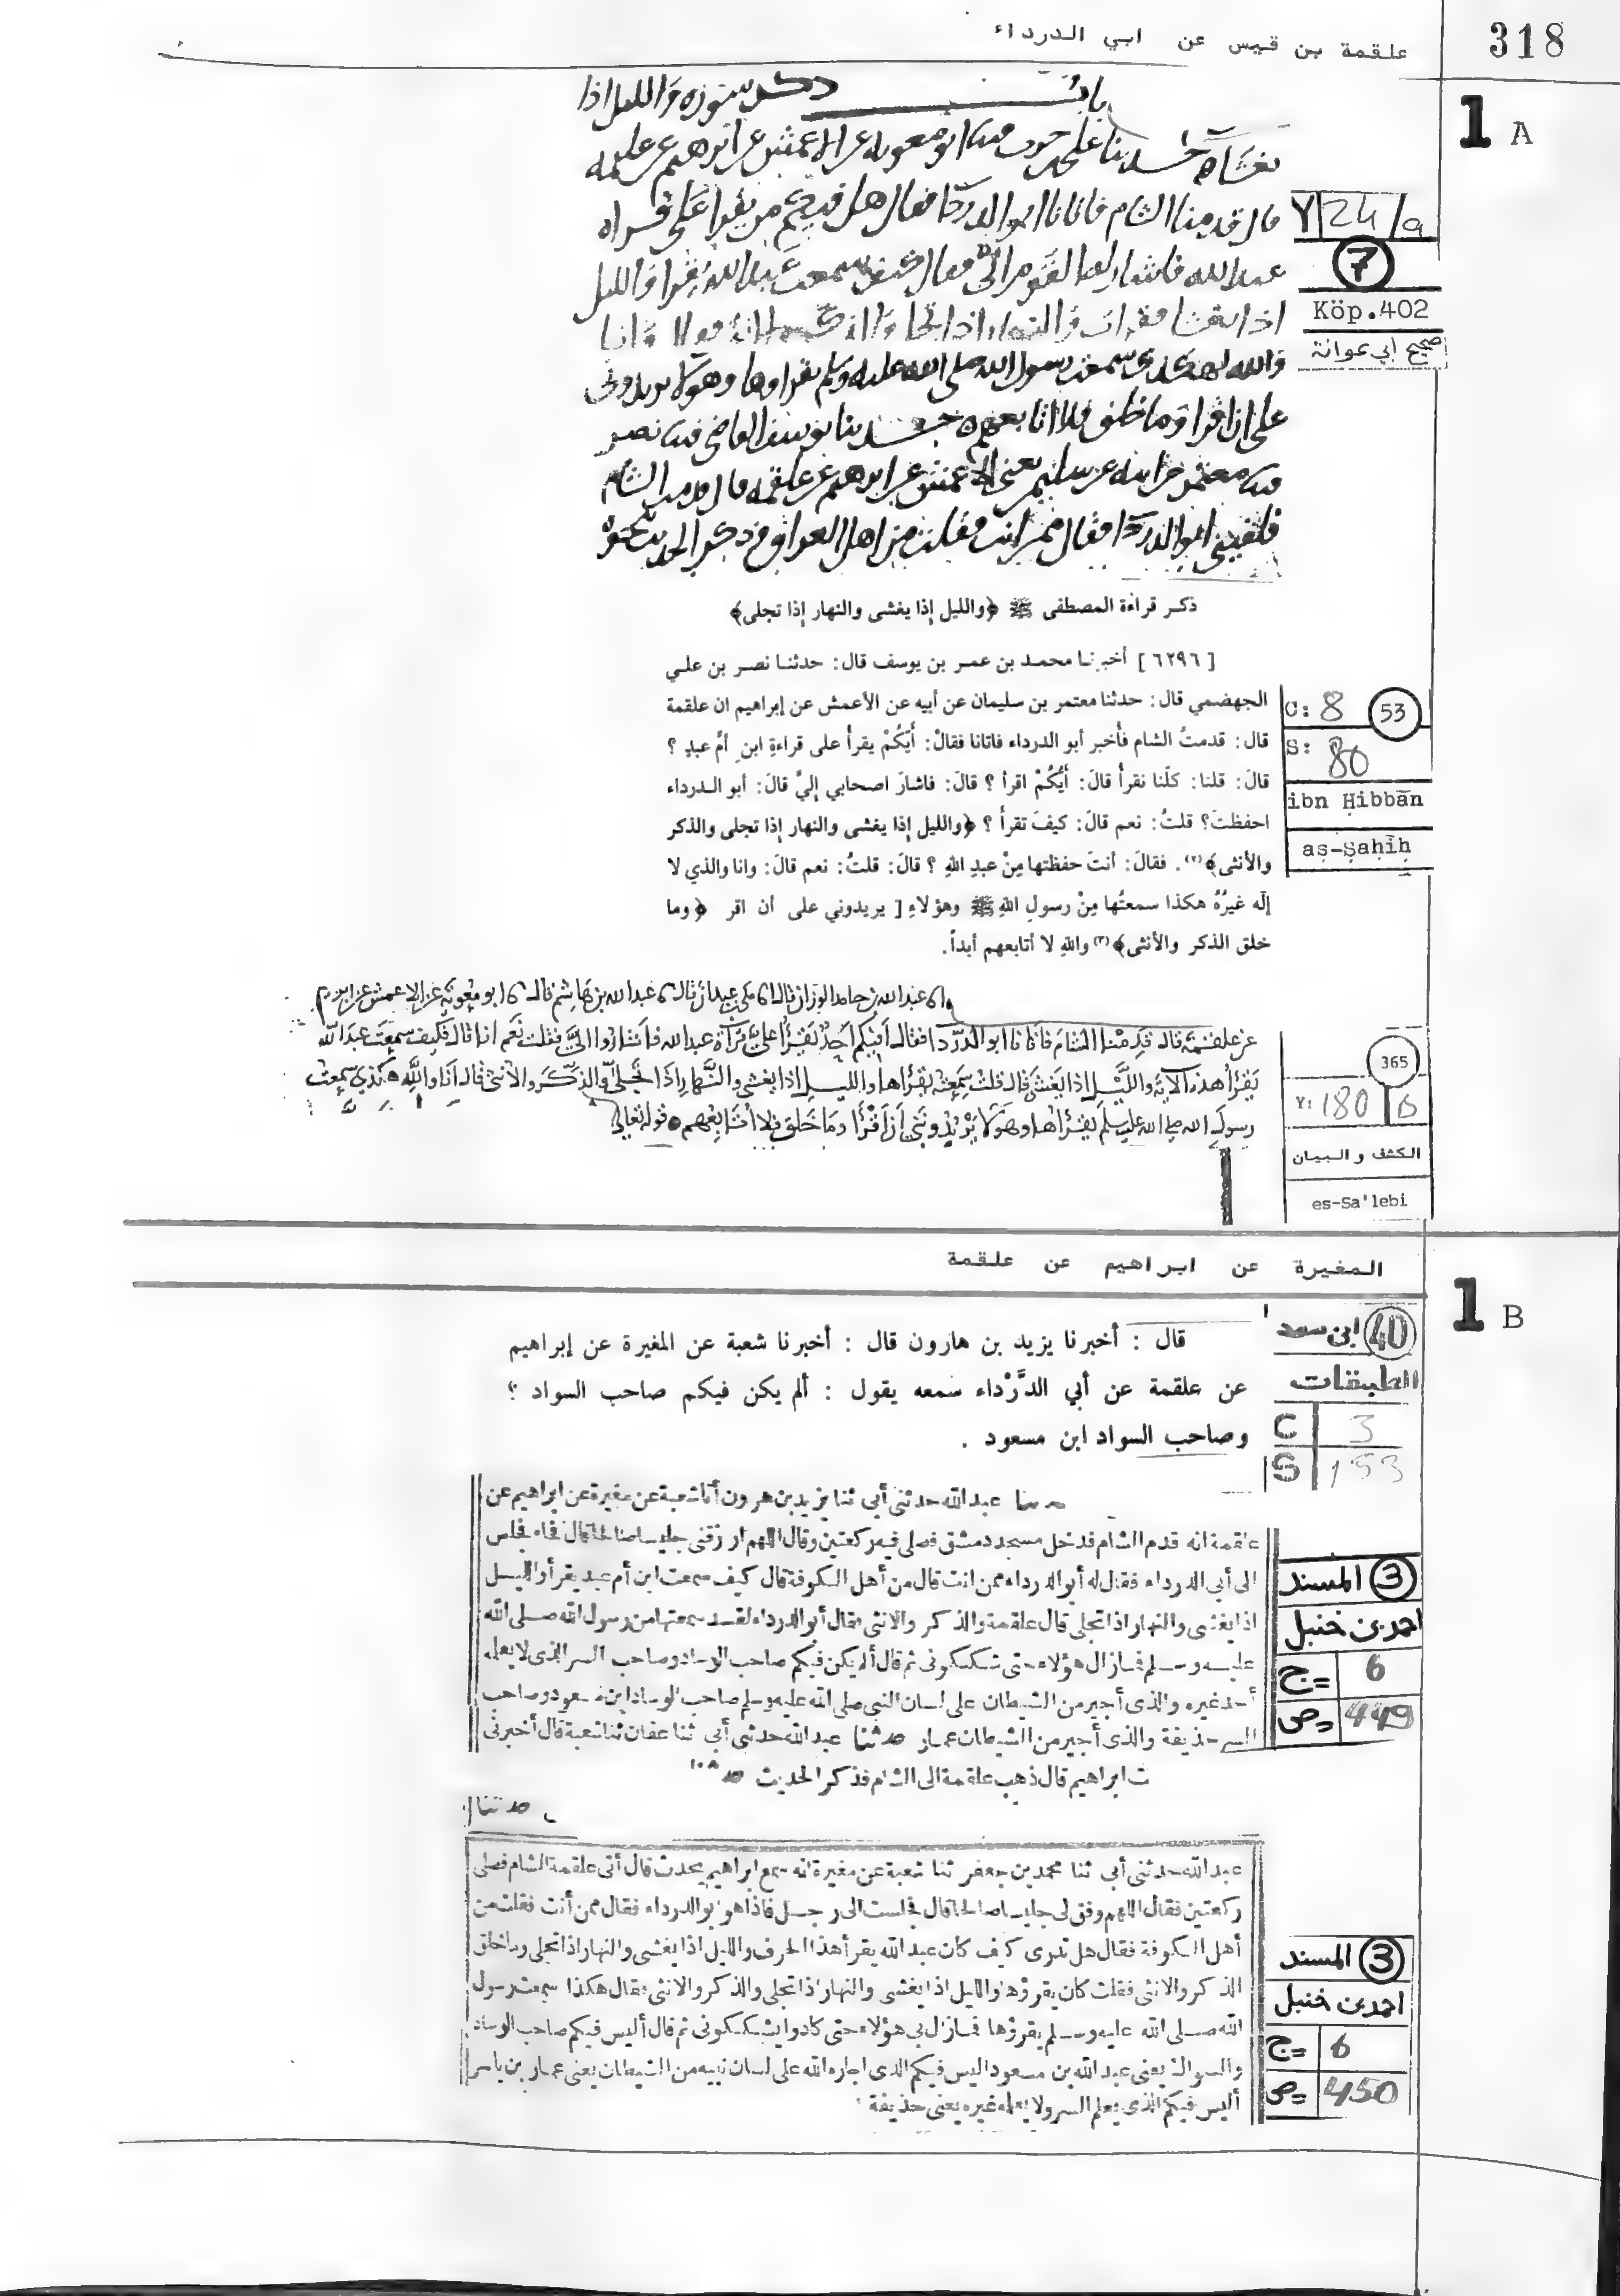 318
علقمة بن قيس عن ابي الدرداء
1 A
باب ذكر سورة والليل اذا
يغشاه حدثنا علي بن حرب ابو معويه عن الاعمش عن ابرهيم عن علقمه
قال قدمنا الشام فاتانا ابو الدردا فقال هل فيكم من يقرا على قراه
عبد الله فاشار القوم الي فقال كيف سمعت عبد الله يقرا والليل
اذا يغشا والنهار اذا تجلا والذكر انا
والله هكذى سمعت رسول الله صلى الله عليه وسلم يقراوها وهولا يريدونى
على ان اقرا وما خلق فلا اتابعهم حدثنا يوسف القاضي نصر
معتمر عن ابيه عن سليم يعني الاعمش عن ابرهيم عن علقمه قال قدمت الشام
فلقيني ابو الدردا فقال ممن انت فقلت من اهل العراق فذكر الحديث نحوه
Y 24/a
7
Köp.402
صحيح ابي عوانة
ذكر قراءة المصطفى ﷺ ﴿والليل إذا يغشى والنهار إذا تجلى﴾
[ ٦٢٩٦ ] أخبرنا محمد بن عمر بن يوسف قال: حدثنا نصر بن علي
الجهضمي قال: حدثنا معتمر بن سليمان عن أبيه عن الأعمش عن إبراهيم ان علقمة
قال: قدمتُ الشام فأخبر أبو الدرداء فاتانا فقالْ: أيّكُمْ يقرأ على قراءةِ ابنِ أمِّ عبدٍ ؟
قالَ: قلنا: كلّنا نقرأ قالَ: أيُّكُمْ اقرأ ؟ قالَ: فاشارَ اصحابي إليَّ قالَ: أبو الدرداء
احفظتَ؟ قلتُ: نعم قالَ: كيفَ تقرأ ؟ ﴿والليل إذا يغشى والنهار إذا تجلى والذكر
والأنثى﴾(٢). فقالَ: أنتَ حفظتها مِنْ عبدِ اللهِ ؟ قالَ: قلتُ: نعم قالَ: وانا والذي لا
إلَه غيرُهُ هكذا سمعتُها مِنْ رسولِ اللهِ ﷺ وهؤلاءِ [ يريدوني على أن اقر ﴿وما
خلق الذكر والأنثى﴾(٣) واللهِ لا أتابعهم أبداً.
C: 8 53
S: 80
ibn Ḥibbān
aṣ-Ṣaḥīḥ
عبد الله بن حامد الوزان قال مكي بن عبدان قال عبد الله بن هاشم قال ابو معوية عن الاعمش عن ابرهيم
عن علقمة قال قدمنا الشام فاتانا ابو الدردا فقال افيكم احد يقرا علي قراة عبد الله فاشاروا الي فقلت نعم انا قال فكيف سمعت عبد الله
يقرا هذه الاية والليل اذا يغشى قال قلت سمعته يقراها والليل اذا يغشى والنهار اذا تجلى والذكر والانثى قال انا والله هكذي سمعت
رسول الله صلى الله عليه وسلم يقراها وهولا يريدونني ان اقرا وما خلق فلا اتابعهم قوله تعالى
365
Y: 180 b
الكشف و البيان
es-Sa'lebi
المغيرة عن ابراهيم عن علقمة
1 B
قال : أخبرنا يزيد بن هارون قال : أخبرنا شعبة عن المغيرة عن إبراهيم
عن علقمة عن أبي الدَّرْداء سمعه يقول : ألم يكن فيكم صاحب السواد ؟
وصاحب السواد ابن مسعود .
40 ابن سعد
الطبقات
C 3
S 153
حدثنا عبد الله حدثني أبي ثنا يزيد بن هرون أنا شعبة عن مغيرة عن ابراهيم عن
علقمة انه قدم الشام فدخل مسجد دمشق فصلى فيه ركعتين وقال اللهم ارزقني جليسا صالحا قال فجاء فجلس
الى أبي الدرداء فقال له أبو الدرداء ممن انت قال من أهل الكوفة قال كيف سمعت ابن أم عبد يقرأ والليل
اذا يغشى والنهار اذا تجلى قال علقمة والذكر والانثى فقال أبو الدرداء لقد سمعتها من رسول الله صلى الله
عليه وسلم فما زال هؤلاء حتى شككوني ثم قال ألم يكن فيكم صاحب الوساد وصاحب السر الذى لا يعلمه
أحد غيره والذى أجير من الشيطان على لسان النبي صلى الله عليه وسلم صاحب الوساد ابن مسعود وصاحب
السر حذيفة والذى أجير من الشيطان عمار حدثنا عبد الله حدثني أبي ثنا عفان ثنا شعبة قال أخبرني
ت ابراهيم قال ذهب علقمة الى الشام فذكر الحديث
3 المسند
احمد بن حنبل
ج= 6
ص= 449
حدثنا
عبد الله حدثني أبي ثنا محمد بن جعفر ثنا شعبة عن مغيرة انه سمع ابراهيم يحدث قال أتى علقمة الشام فصلى
ركعتين فقال اللهم وفق لى جليسا صالحا قال فجلست الى رجل فاذا هو أبو الدرداء فقال ممن أنت فقلت من
أهل الكوفة فقال هل تدرى كيف كان عبد الله يقرأ هذا الحرف والليل اذا يغشى والنهار اذا تجلى وما خلق
الذكر والانثى فقلت كان يقرؤها والليل اذا يغشى والنهار اذا تجلى والذكر والانثى فقال هكذا سمعت رسول
الله صلى الله عليه وسلم يقرؤها فما زال بي هؤلاء حتى كادوا يشككوني ثم قال أليس فيكم صاحب الوساد
والسواك يعنى عبد الله بن مسعود اليس فيكم الذى اجاره الله على لسان نبيه من الشيطان يعنى عمار بن ياسر
أليس فيكم الذى يعلم السر ولا يعلمه غيره يعنى حذيفة
3 المسند
احمد بن حنبل
ج= 6
ص= 450